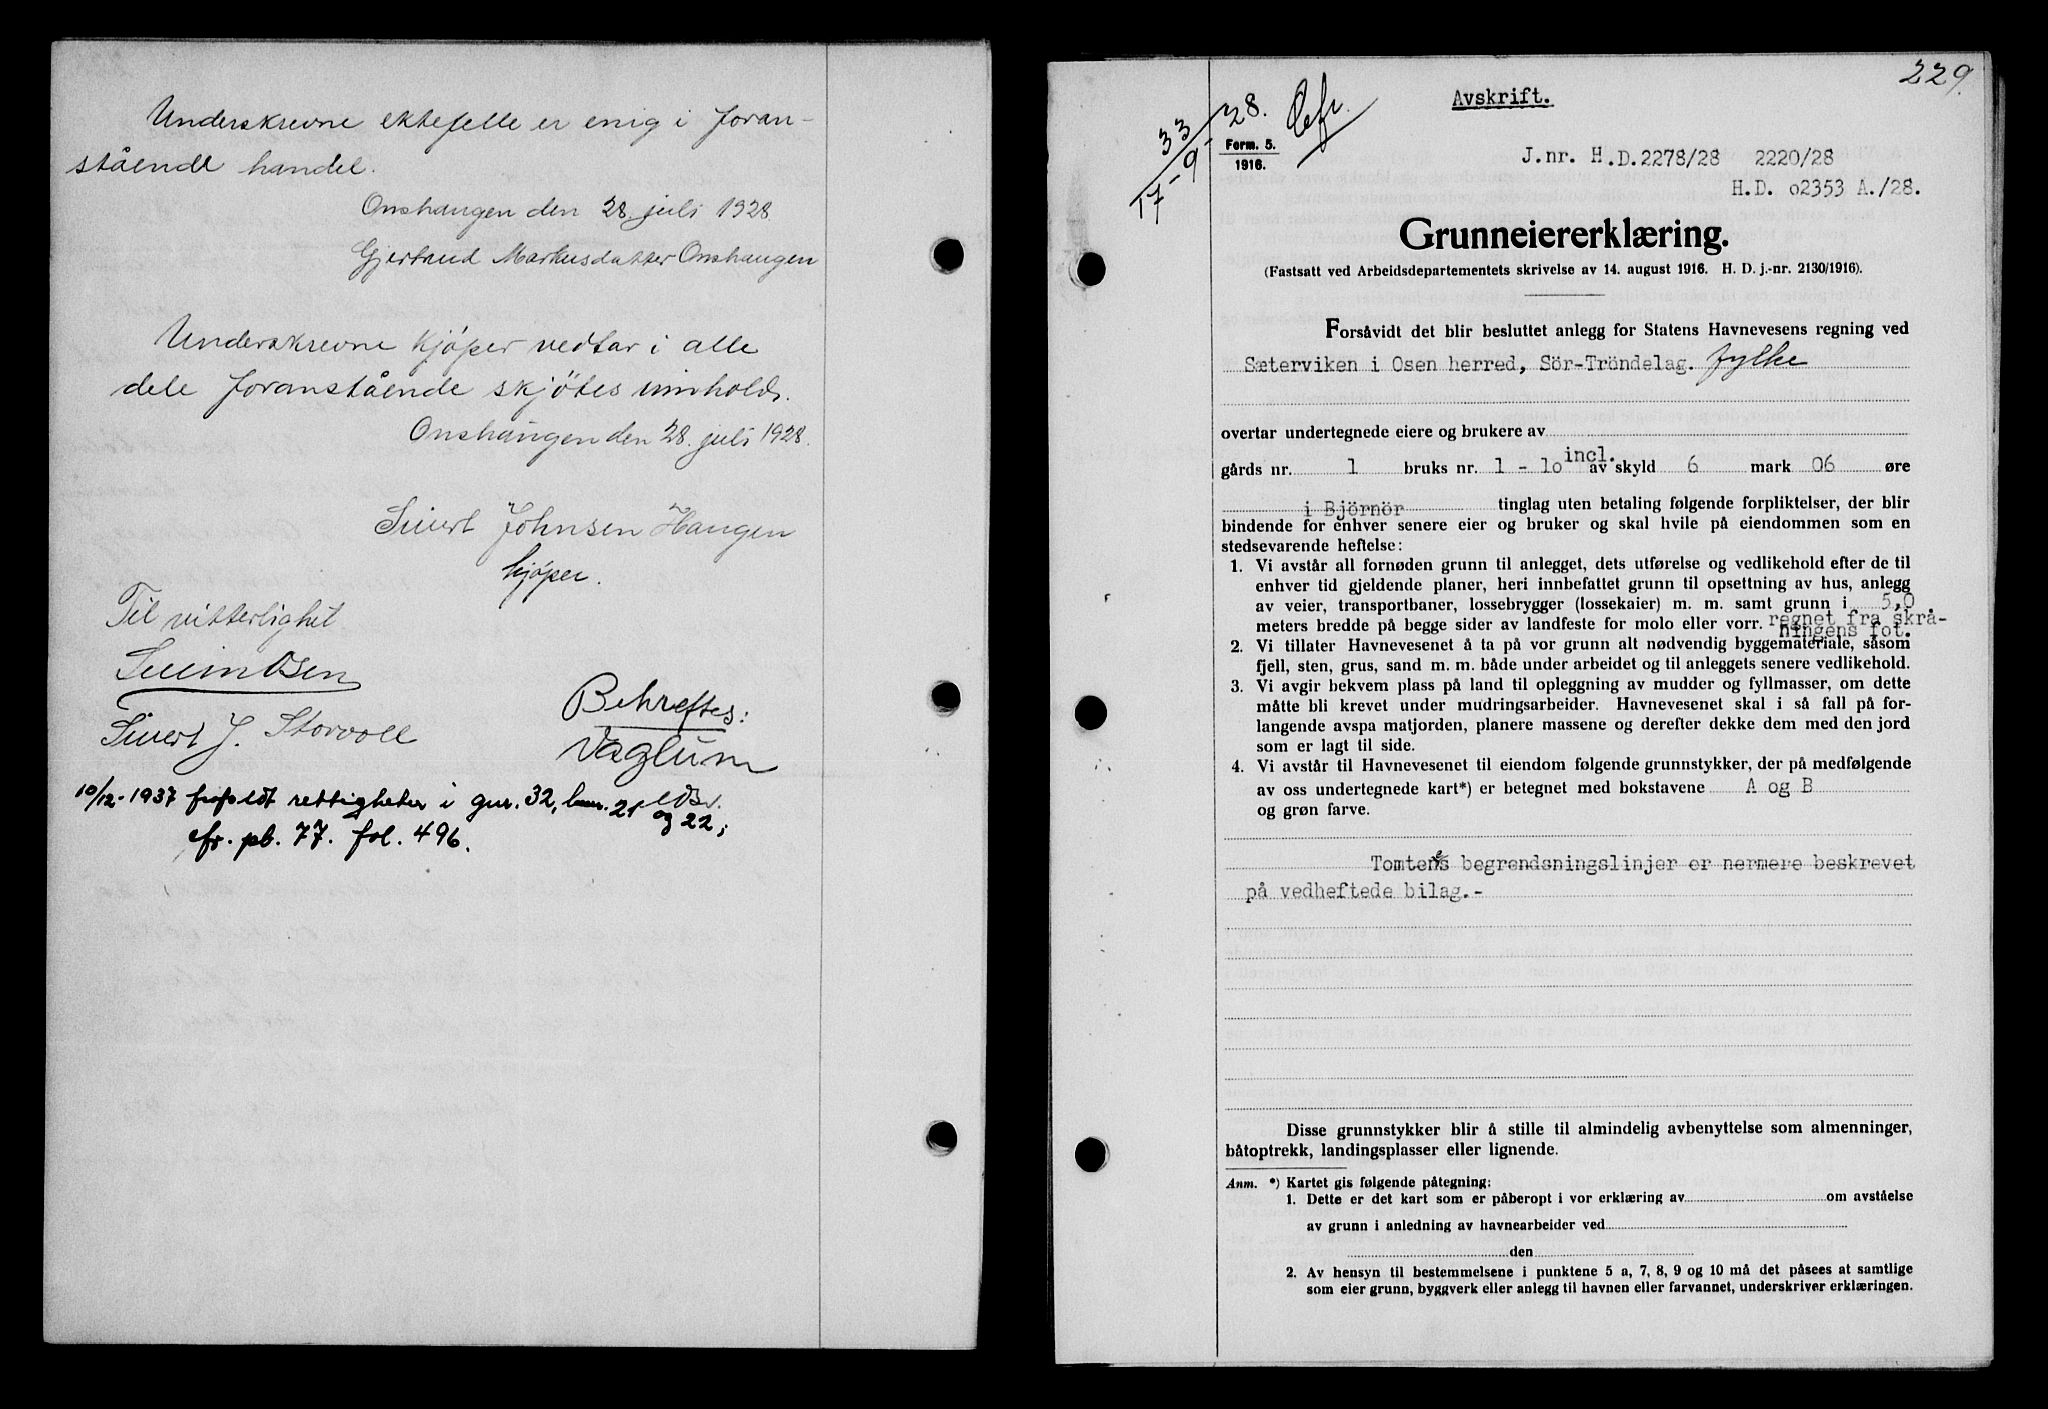 Underskrevne ektefelle er enig i foran-
stående handel.
Onshaugen den 28. juli 1928
Gjertaud Markusdatter Onshaugen
Underskrevne kjöper vedtar i alle
dele foranstående skjötes innhold.
Onshaugen den 28. juli 1928.
Sivert Johnsen Haugen
kjöper.
Til vitterlighet
Sivert J. Storvoll
Bekreftes:
Vaglum
10/12-1937 frafaldt rettigheter i gnr. 32, bnr. 21 og 22,
cfr. pb. 77. fol. 496.
229.
Avskrift.
33
17-9-28. Cfr.
Form. 5.
1916.
J.nr. H.D.2278/28 2220/28
H.D. 02353 A./28.
Grunneiererklæring.
(Fastsatt ved Arbeidsdepartementets skrivelse av 14. august 1916. H. D. j.-nr. 2130/1916).
Forsåvidt det blir besluttet anlegg for Statens Havnevesens regning ved
Sæterviken i Osen herred, Sör-Tröndelag. fylke
overtar undertegnede eiere og brukere av
gårds nr. 1 bruks nr. 1 - 10 incl. av skyld 6 mark 06 øre
i Björnör tinglag uten betaling følgende forpliktelser, der blir
bindende for enhver senere eier og bruker og skal hvile på eiendommen som en
stedsevarende heftelse:
1. Vi avstår all fornøden grunn til anlegget, dets utførelse og vedlikehold efter de til
enhver tid gjeldende planer, heri innbefattet grunn til opsettning av hus, anlegg
av veier, transportbaner, lossebrygger (lossekaier) m. m. samt grunn i 5,0
meters bredde på begge sider av landfeste for molo eller vorr. regnet fra skrå-
ningens fot.
2. Vi tillater Havnevesenet å ta på vor grunn alt nødvendig byggemateriale, såsom
fjell, sten, grus, sand m. m. både under arbeidet og til anleggets senere vedlikehold.
3. Vi avgir bekvem plass på land til opleggning av mudder og fyllmasser, om dette
måtte bli krevet under mudringsarbeider. Havnevesenet skal i så fall på for-
langende avspa matjorden, planere massene og derefter dekke dem med den jord
som er lagt til side.
4. Vi avstår til Havnevesenet til eiendom følgende grunnstykker, der på medfølgende
av oss undertegnede kart*) er betegnet med bokstavene A og B
og grøn farve.
Tomtens begrendsningslinjer er nermere beskrevet
på vedheftede bilag.-
Disse grunnstykker blir å stille til almindelig avbenyttelse som almenninger,
båtoptrekk, landingsplasser eller lignende.
Anm. *) Kartet gis følgende påtegning:
1. Dette er det kart som er påberopt i vor erklæring av om avståelse
av grunn i anledning av havnearbeider ved
den
2. Av hensyn til bestemmelsene i punktene 5 a, 7, 8, 9 og 10 må det påsees at samtlige
som eier grunn, byggverk eller anlegg til havnen eller farvannet, underskriver erklæringen.